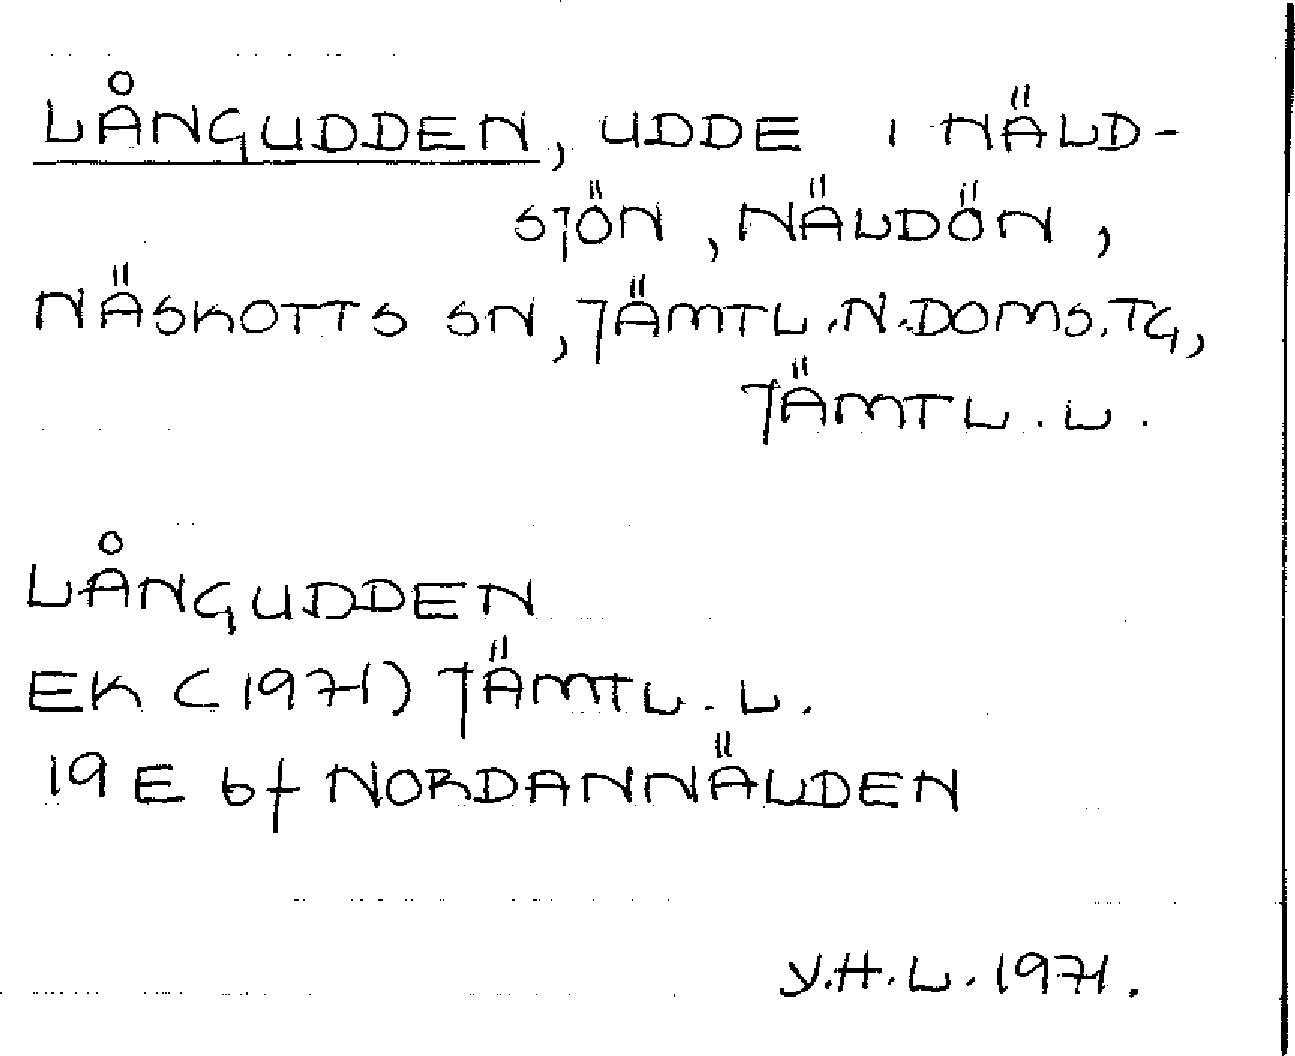 LÅNGUDDEN, UDDE I NÄLD-
SJÖN, NÄLDÖN,
NÄSKOTTS SN, JÄMTL.N.DOMS.TG,
JÄMTL.L.
LÅNGUDDEN
EK (1971) JÄMTL.L.
19 E bf NORDANNÄLDEN
Y.H.L.1971.